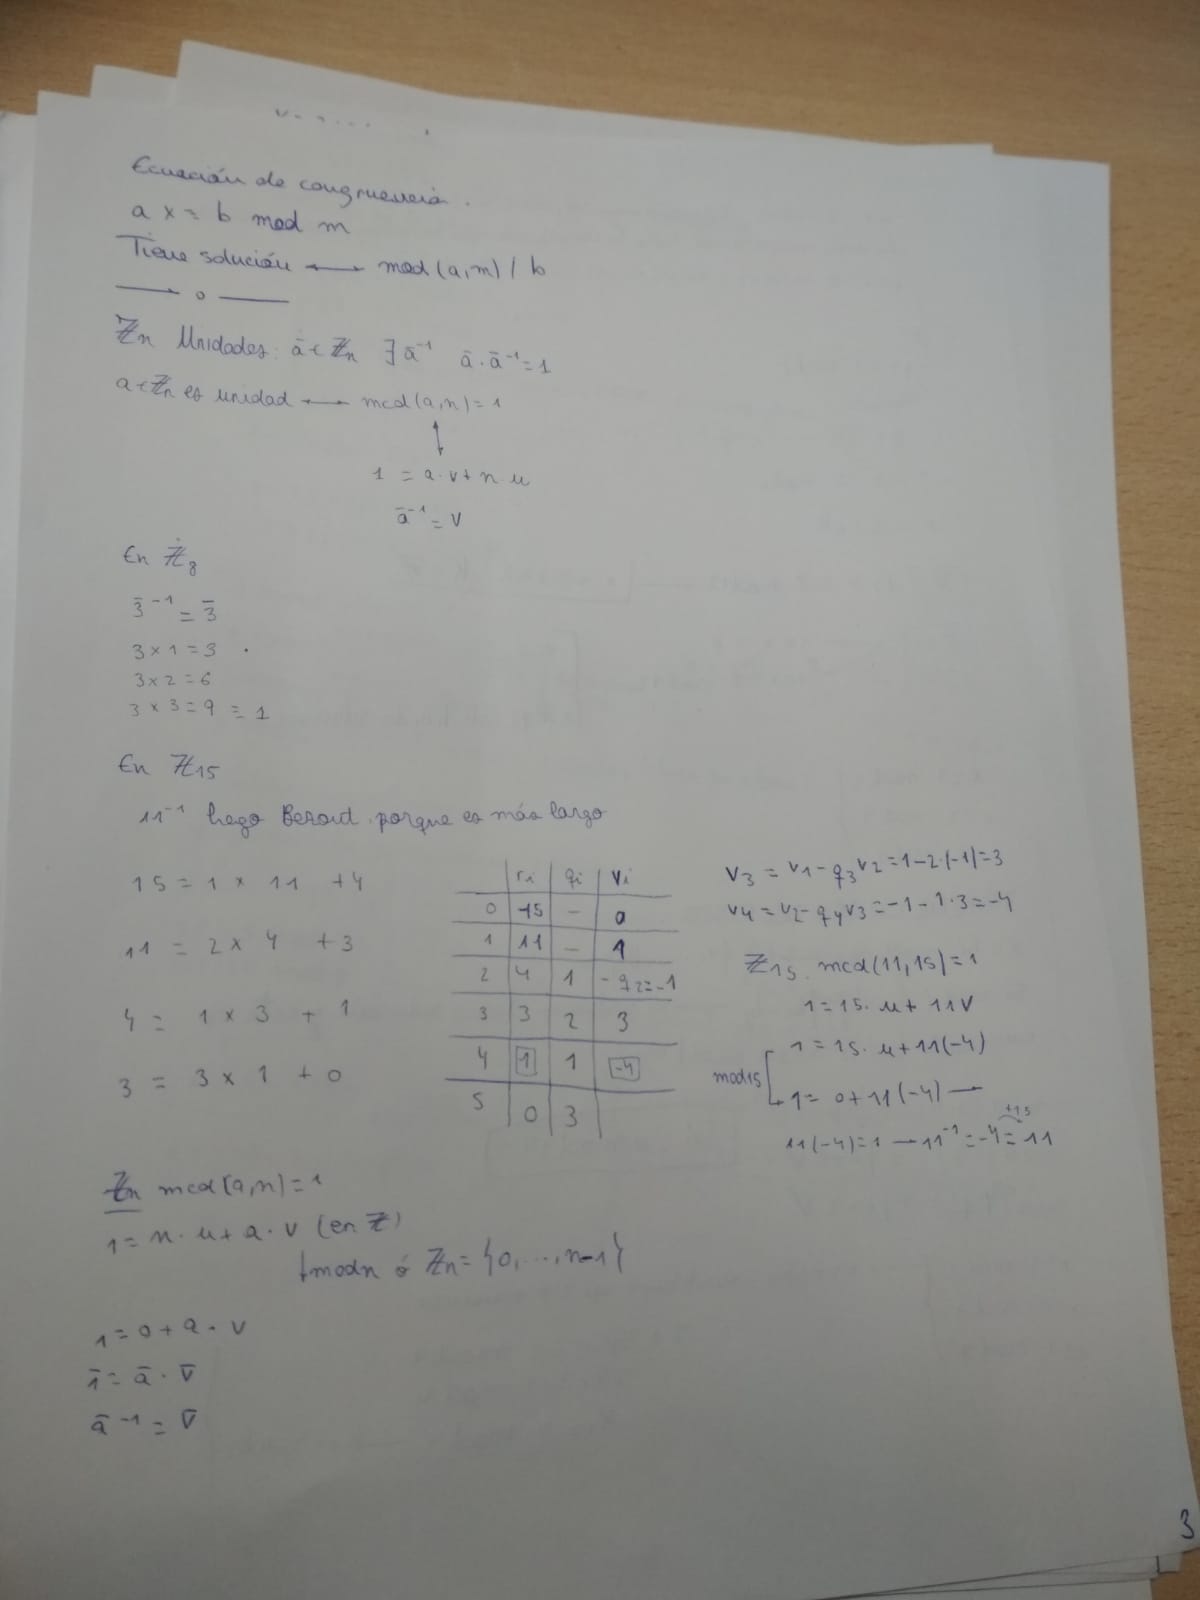 Ecuación de congruencia.
a x = b mod m
Tiene solución ⟷ mcd(a,m) / b
Zn Unidades: ā ∈ Zn ∃ ā⁻¹ ā · ā⁻¹ = 1
a ∈ Zn es unidad ⟷ mcd(a,n) = 1
↕
1 = a·v + n u
ā⁻¹ = v
En Z8
3̄⁻¹ = 3̄
3 x 1 = 3
3 x 2 = 6
3 x 3 = 9 = 1
En Z15
11⁻¹ hago Bezout porque es más largo
15 = 1 x 11 + 4
11 = 2 x 4 + 3
4 = 1 x 3 + 1
3 = 3 x 1 + 0
ri qi vi
0 15 – 0
1 11 – 1
2 4 1 -q2=-1
3 3 2 3
4 1 1 -4
5 0 3
v3 = v1 - q3 v2 = 1-2·(-1) = 3
v4 = v2 - q4 v3 = -1 - 1·3 = -4
Z15. mcd(11,15) = 1
1 = 15. u + 11v
1 = 15. u + 11(-4)
mod15
1 = 0 + 11(-4) →
+15
11(-4) = 1 → 11⁻¹ = -4 = 11
Zn mcd(a,n) = 1
1 = n. u + a. v (en Z)
↓ modn ó Zn = {0,...,n-1}
1 = 0 + a. v
1̄ = ā · v̄
ā⁻¹ = v̄
3